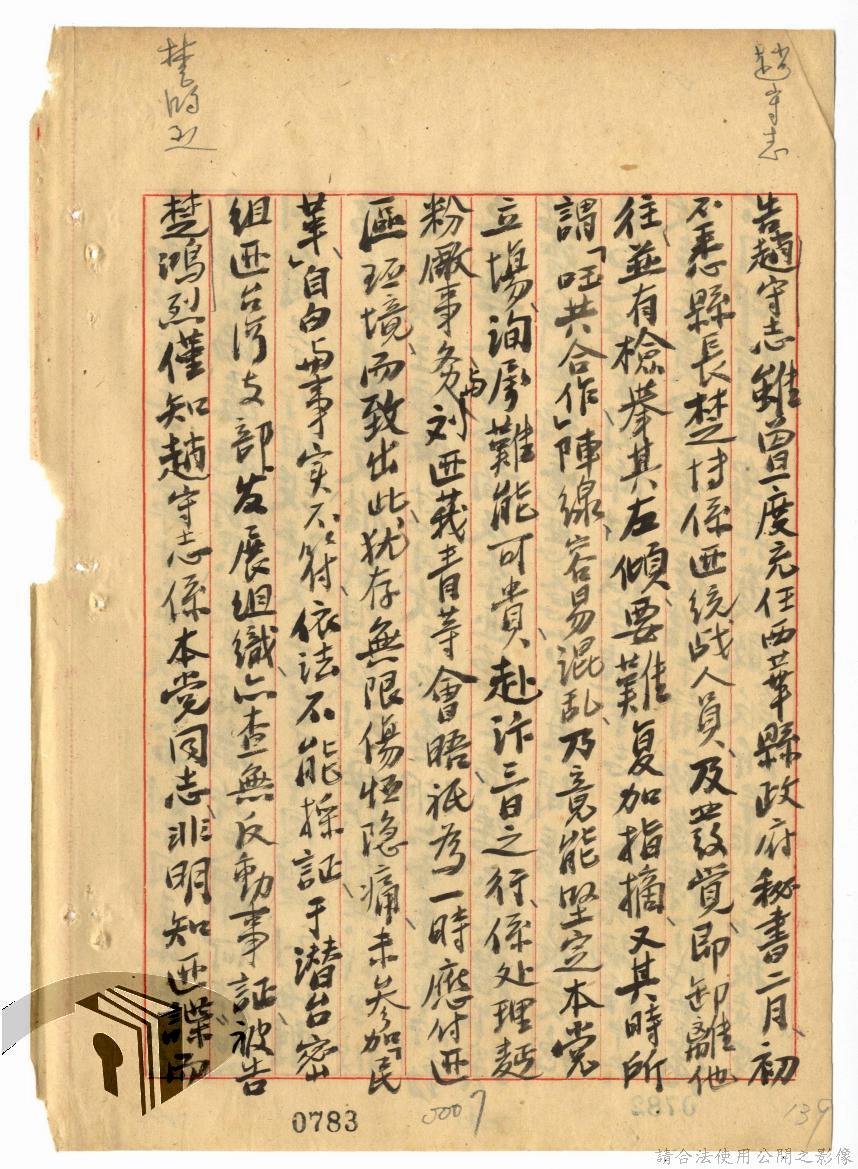 趙守志
告趙守志雖曾一度充任西華縣政府秘書二月、初
不悉縣長楚博係匪統战人員、及發覚即卸離他
往、並有檢举其左傾、要難复加指摘、又其時所
謂「国共合作」陣線、容易混乱、乃竟能堅定本党
立場、洵属難能可貴、赴汴三日之行、係处理麵
粉廠事务、与刘匪莪青等會晤祇為一時應付匪
區环境、而致出此、犹存無限傷恒隐痛、未参加「民
革」、自白与事实不符、依法不能採証、于潜台密
组匪台湾支部、发展组織、亦查無反動事証、被告
楚鴻烈僅知趙守志係本党同志、非明知匪諜而
楚鴻烈
0783
0007
139
請合法使用公開之影像